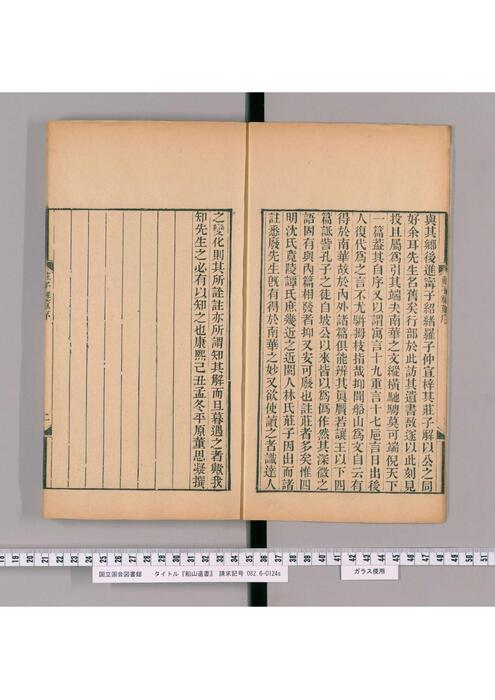 與其鄉後進甯子紹緒羅子仲宣梓其莊子解以公之同
好余耳先生名舊矣行部於此訪其遺書故遂以此刻見
投且屬爲引其端夫南華之文縱橫馳騁莫可端倪天下
一篇蓋其自序又以謂寓言十九重言十七巵言日出後
人復代爲之言不尤駢拇枝指哉抑聞船山爲文自云有
得於南華故於內外諸篇俱能辨其眞贋若讓王以下四
篇詆訾孔子之徒自坡公以來皆以爲僞作然其深微之
語固有與內篇相發者抑又安可廢也註莊者多矣惟四
明沈氏竟陵譚氏庶幾近之近閩人林氏莊子因出而諸
註悉廢先生旣有得於南華之妙又欲使讀之者識達人
之變化則其所詮註亦所謂知其解而旦暮遇之者歟我
知先生之必有以知之也康熙己丑孟冬平原董思凝撰
莊子解序
二
国立国会図書館 タイトル『船山遺書』 請求記号 082.6-0124s
ガラス使用
18 19 20 21 22 23 24 25 26 27 28 29 30 31 32 33 34 35 36 37 38 39 40 41 42 43 44 45 46 47 48 49 50 51